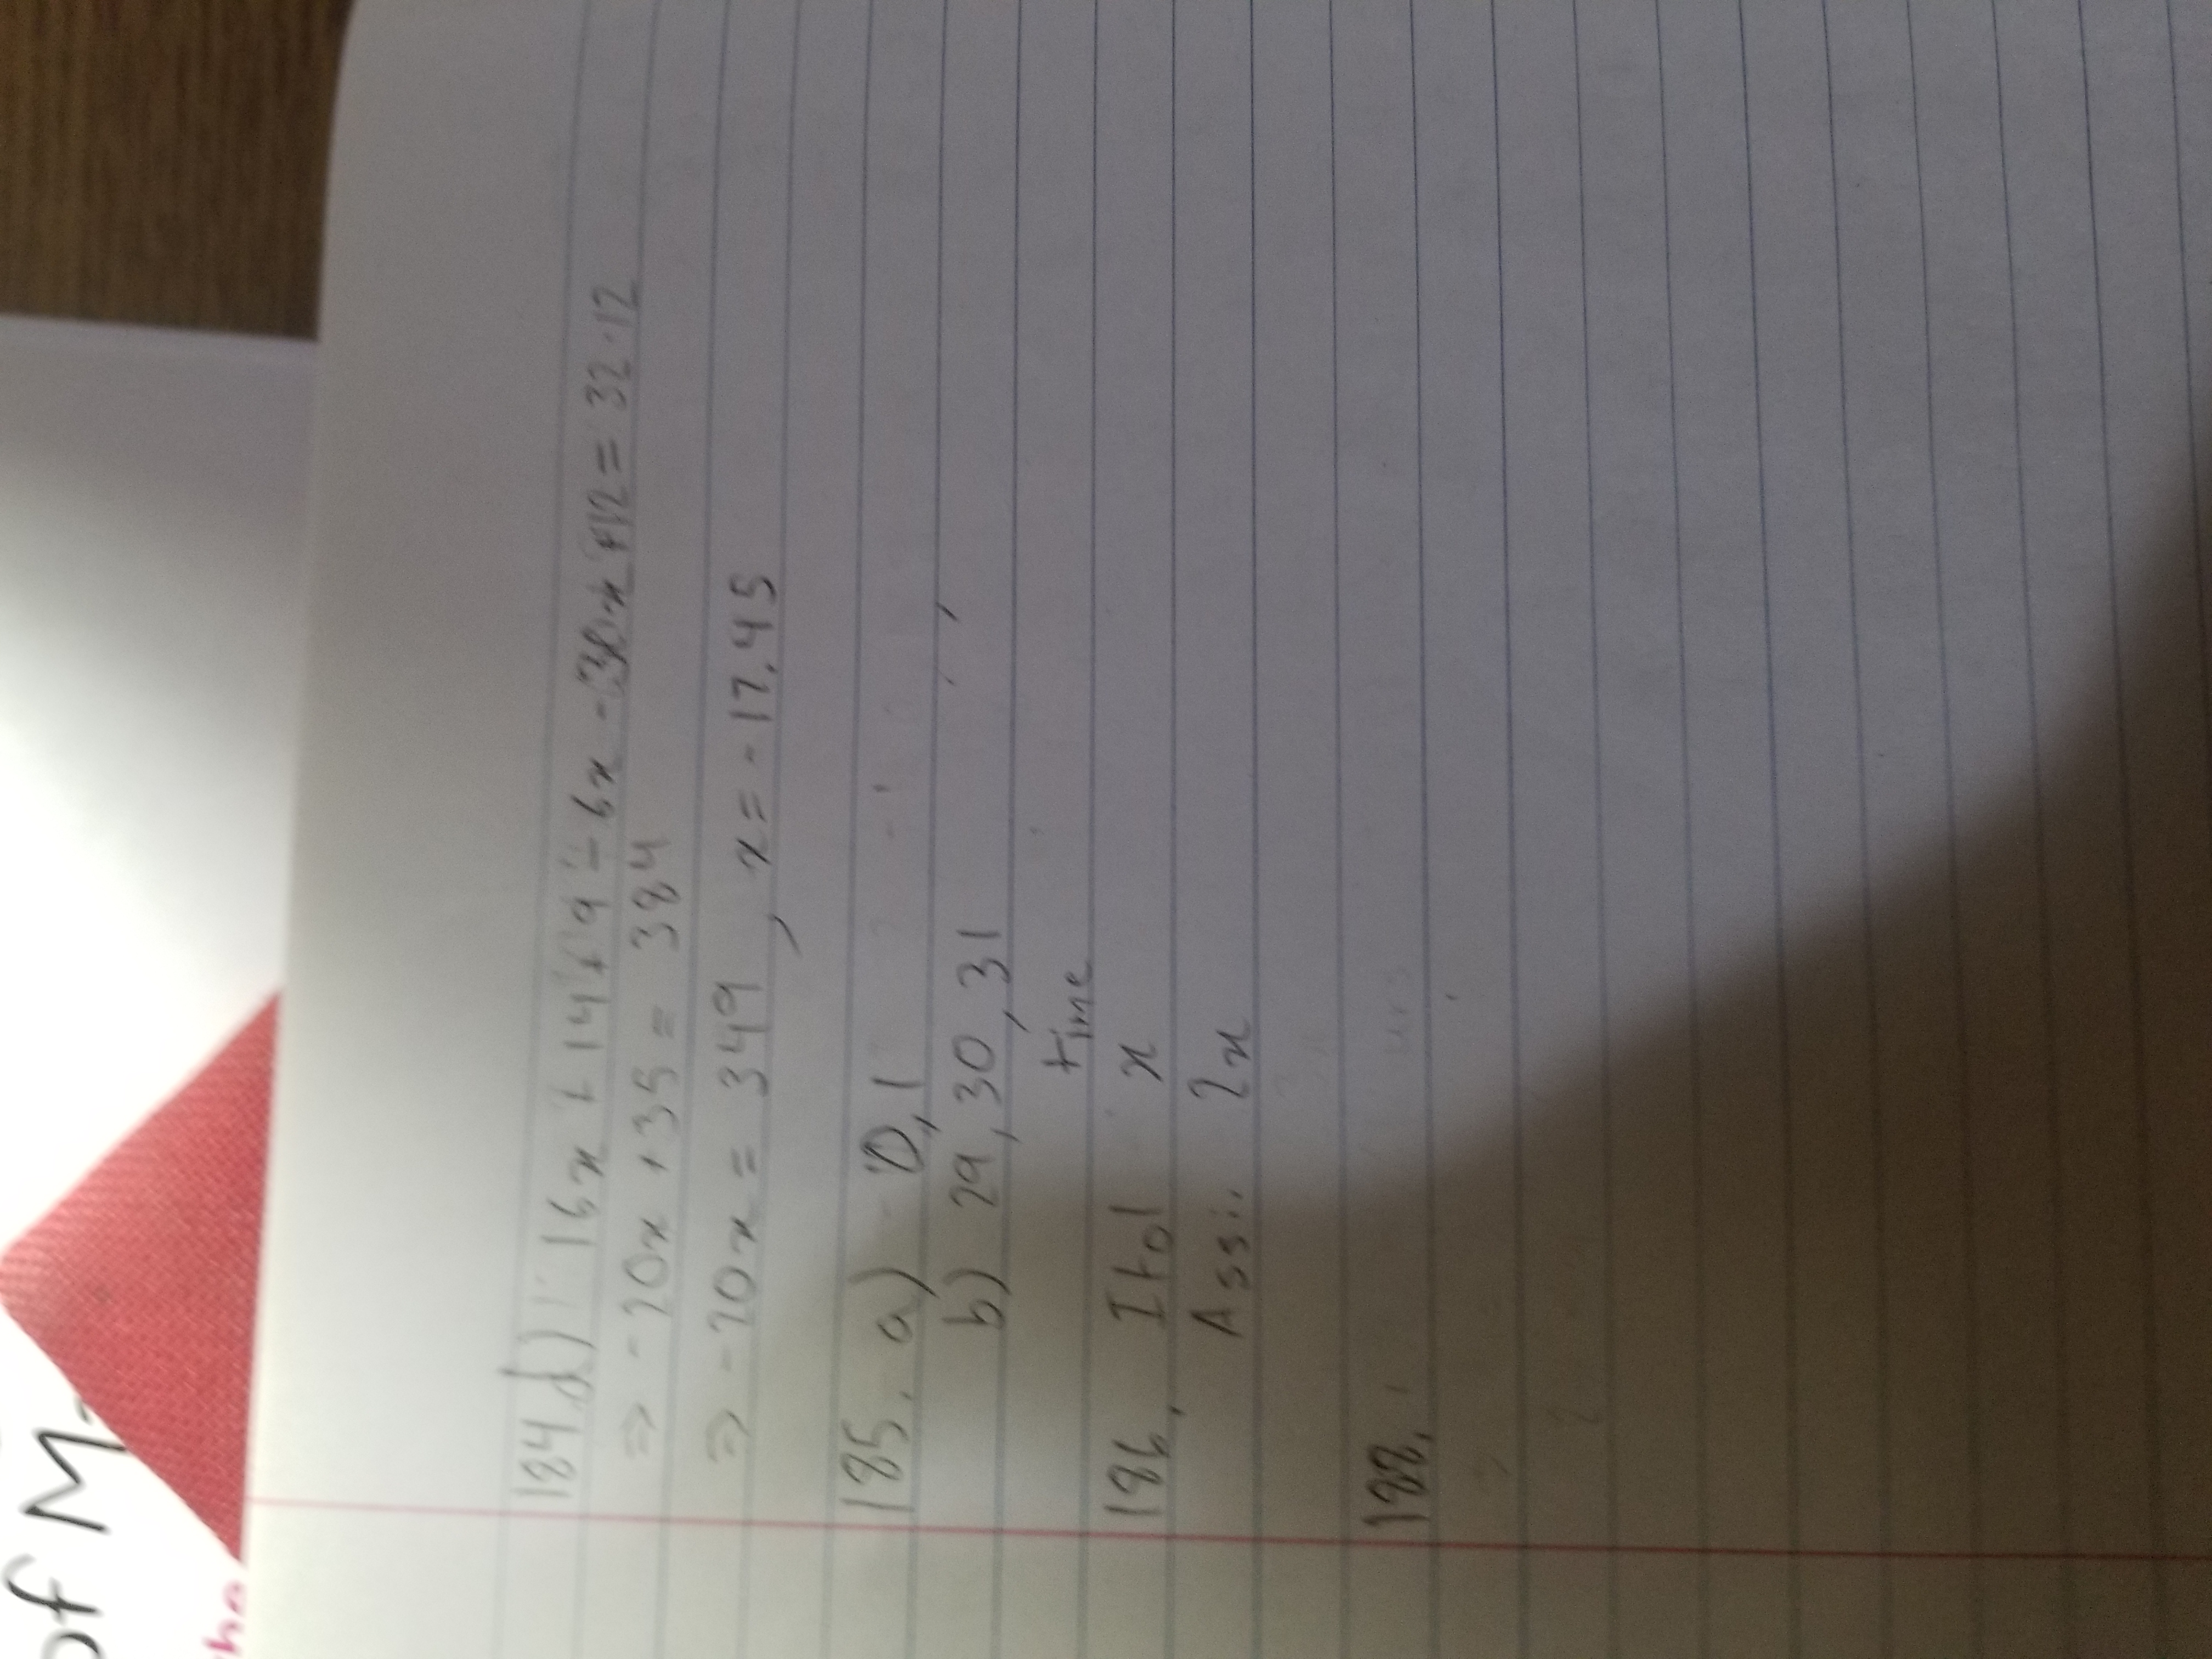 of M
he
184 d) 16x + 14 + 9 - 6x - 30x + 12 = 32·12
⇒ -20x + 35 = 384
⇒ -20x = 349, x = -17.45
185. a) 0, 1
b) 29, 30, 31
time
186. Itol x
Assi. 2x
188.